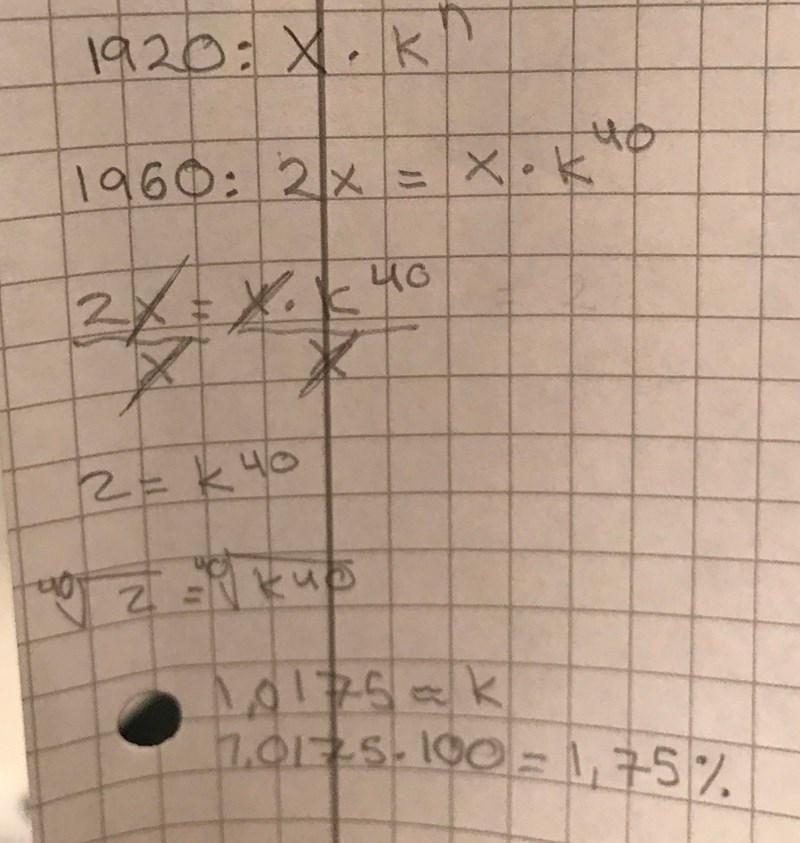 1920: x · kⁿ
1960: 2x = x · k⁴⁰
2x/x = x · k⁴⁰/x
2 = k⁴⁰
⁴⁰√2 = ⁴⁰√k⁴⁰
1,0175 ≈ k
1,0175 · 100 = 1,75%